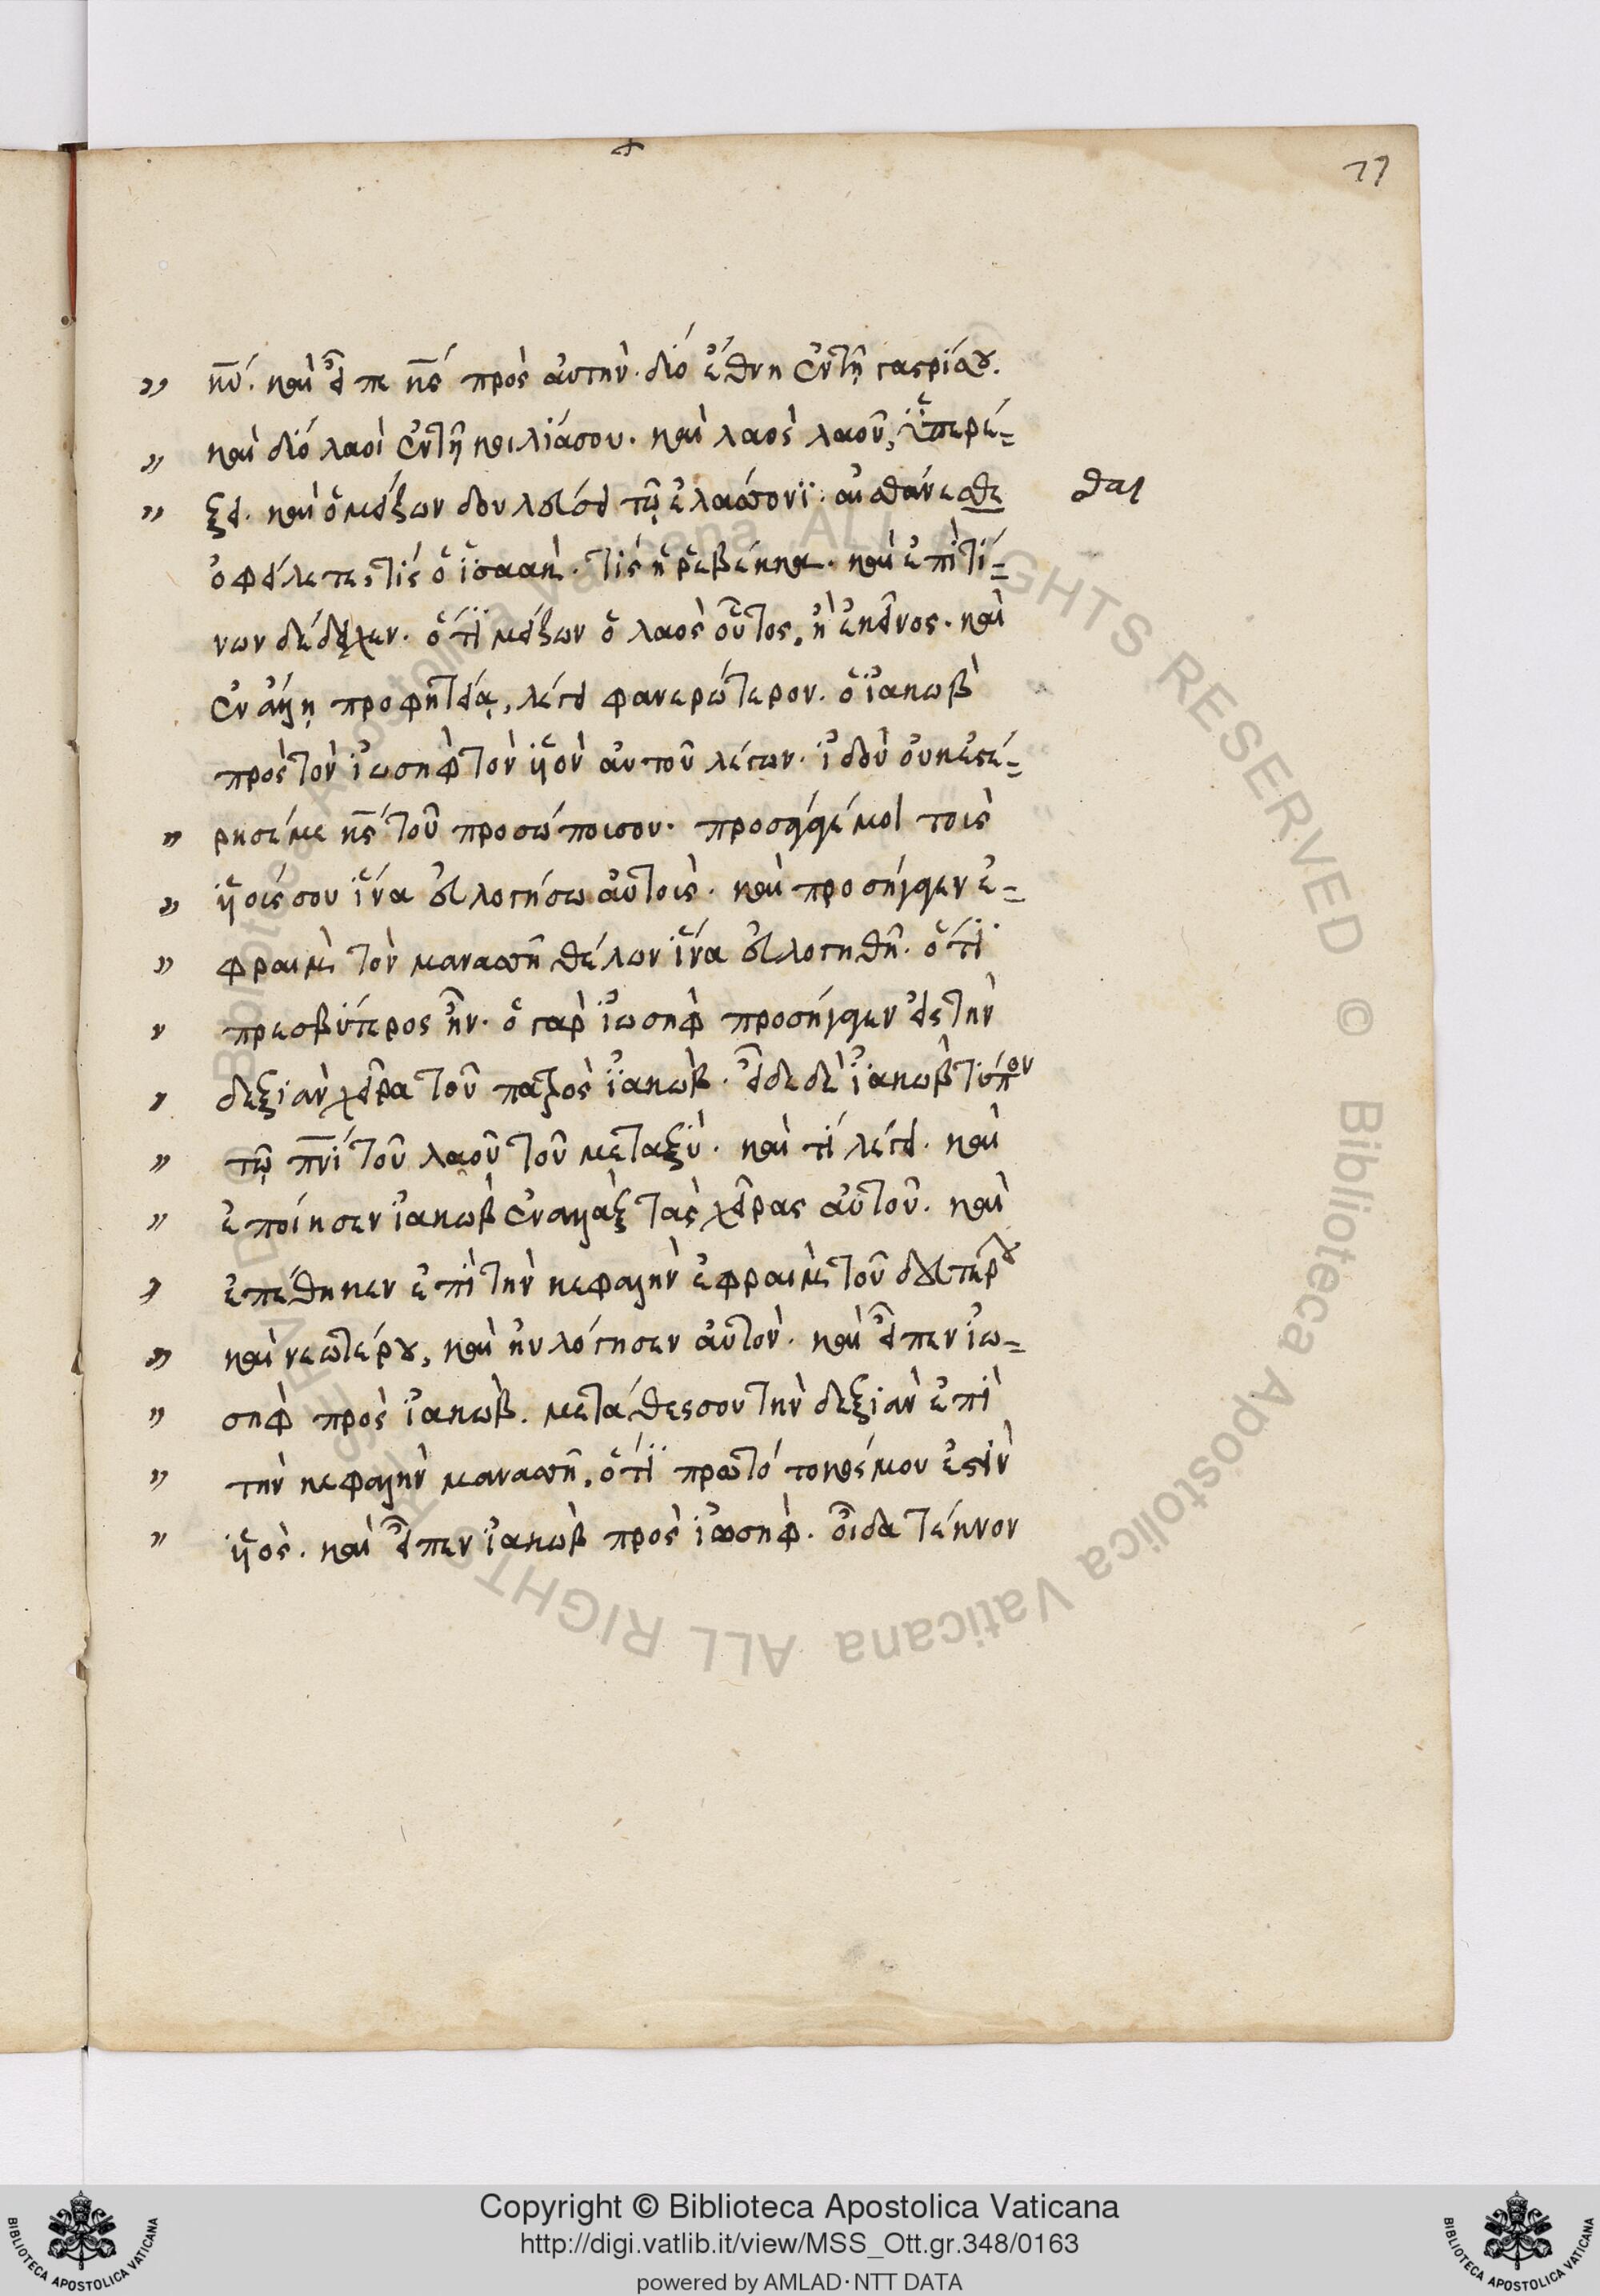 77
κυ̅́. καὶ εἶπε κς̅́ πρὸς ἀυτὴν. δύο ἔθνη ἐν τῆ γαστρί σου.
καὶ δύο λαοὶ ἐν τῆ κοιλία σου. καὶ λαὸς λαοῦ, ὑπερέ=
ξει. καὶ ὁ μείζων δουλεύσει τῶ ἐλάσσονϊ. αἰσθάνεσθε
σθαι
ὀφείλετε, τίς ὁ ἰσαάκ. τίς ἡ ῥεβέκκα. καὶ ἐπὶ τί=
νων δέδειχεν. ὅτϊ μείζων ὁ λαὸς οὗτος, ἢ ἐκεῖνος. καὶ
ἐν ἄλλη προφητεία, λέγει φανερώτερον. ὁ ἰακὼβ
πρὸς τὸν ἰωσὴφ τὸν ὑιὸν ἀυτοῦ λέγων. ἰδοὺ οὐκ ἐστέ=
ρησέ με κς̅́ τοῦ προσώποι σου. προσάγαγέ μοι τοὶς
ὑιοίς σου ἵνα εὐλογήσω ἀυτοὶς. καὶ προσήγαγεν ἐ=
φραὶμ τὸν μανασσῆ θέλων ἵνα εὐλογηθῆ. ὅτϊ
πρεσβύτερος ἦν. ὁ γὰρ ἰωσὴφ προσήγαγεν εἰς τὴν
δεξιὰν χεῖρα τοῦ πατρὸς ἰακὼβ. εἶδε δὲ ἰακὼβ τύπον
τῶ πνι̅́ τοῦ λαοῦ τοῦ μεταξὺ. καὶ τί λέγει. καὶ
ἐποίησεν ἰακὼβ ἐναλλὰξ τὰς χεῖρας ἀυτοῦ. καὶ
ἐπέθηκεν ἐπὶ τὴν κεφαλὴν ἐφραὶμ τοῦ δευτέρου
καὶ νεωτέρου, καὶ ἠυλόγησεν ἀυτὸν. καὶ εἶπεν ἰω=
σὴφ πρὸς ἰακὼβ. μετάθες σου τὴν δεξιὰν ἐπὶ
τὴν κεφαλὴν μανασσῆ, ὅτϊ πρωτότοκός μου ἐστὶν
ὑιὸς. καὶ εἶπεν ἰακὼβ πρὸς ἰωσὴφ. οἶδα τέκνον
Copyright © Biblioteca Apostolica Vaticana
http://digi.vatlib.it/view/MSS_Ott.gr.348/0163
powered by AMLAD·NTT DATA